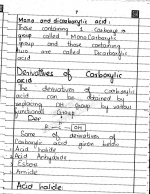 Mono and dicarboxylic acid:
Those containing 1 Carboxylic
group called Mono Carboxylic
group and those containing
two are called Dicarboxylic
acid
Derivatives of Carboxylic
acid
The derivatives of carboxylic
acid can be obtained by
replacing OH group by various
functional Group
R - C - OH
Some of derivatives of
Carboxylic acid given below
Acid halide
Acid Anhydride
Esters
Amide
Acid halide: